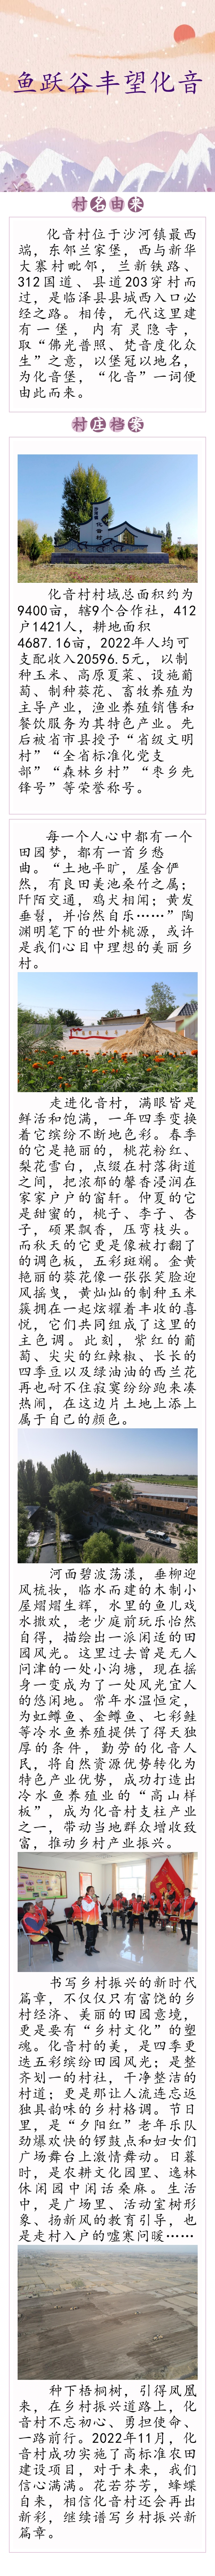 鱼跃谷丰望化音
村名由来
化音村位于沙河镇最西
端，东邻兰家堡，西与新华
大寨村毗邻，兰新铁路、
312国道、县道203穿村而
过，是临泽县县城西入口必
经之路。相传，元代这里建
有一堡，内有灵隐寺，
取“佛光普照、梵音度化众
生”之意，以堡冠以地名，
为化音堡，“化音”一词便
由此而来。
村庄档案
化音村村域总面积约为
9400亩，辖9个合作社，412
户1421人，耕地面积
4687.16亩，2022年人均可
支配收入20596.5元，以制
种玉米、高原夏菜、设施葡
萄、制种葵花、畜牧养殖为
主导产业，渔业养殖销售和
餐饮服务为其特色产业。先
后被省市县授予“省级文明
村”“全省标准化党支
部”“森林乡村”“枣乡先
锋号”等荣誉称号。
每一个人心中都有一个
田园梦，都有一首乡愁
曲。“土地平旷，屋舍俨
然，有良田美池桑竹之属；
阡陌交通，鸡犬相闻；黄发
垂髫，并怡然自乐……”陶
渊明笔下的世外桃源，或许
是我们心目中理想的美丽乡
村。
走进化音村，满眼皆是
鲜活和饱满，一年四季变换
着它缤纷不断地色彩。春季
的它是艳丽的，桃花粉红、
梨花雪白，点缀在村落街道
之间，把浓郁的馨香浸润在
家家户户的窗轩。仲夏的它
是甜蜜的，桃子、李子、杏
子，硕果飘香，压弯枝头。
而秋天的它更是像被打翻了
的调色板，五彩斑斓。金黄
艳丽的葵花像一张张笑脸迎
风摇曳，黄灿灿的制种玉米
簇拥在一起炫耀着丰收的喜
悦，它们共同组成了这里的
主色调。此刻，紫红的葡
萄、尖尖的红辣椒、长长的
四季豆以及绿油油的西兰花
再也耐不住寂寞纷纷跑来凑
热闹，在这边片土地上添上
属于自己的颜色。
河面碧波荡漾，垂柳迎
风梳妆，临水而建的木制小
屋熠熠生辉，水里的鱼儿戏
水撒欢，老少庭前玩乐怡然
自得，描绘出一派闲适的田
园风光。这里过去曾是无人
问津的一处小沟塘，现在摇
身一变成为了一处风光宜人
的悠闲地。常年水温恒定，
为虹鳟鱼、金鳟鱼、七彩鲑
等冷水鱼养殖提供了得天独
厚的条件，勤劳的化音人
民，将自然资源优势转化为
特色产业优势，成功打造出
冷水鱼养殖业的“高山样
板”，成为化音村支柱产业
之一，带动当地群众增收致
富，推动乡村产业振兴。
书写乡村振兴的新时代
篇章，不仅仅只有富饶的乡
村经济、美丽的田园意境，
更是要有“乡村文化”的塑
魂。化音村的美，是四季更
迭五彩缤纷田园风光；是整
齐划一的村社，干净整洁的
村道；更是那让人流连忘返
独具韵味的乡村格调。节日
里，是“夕阳红”老年乐队
劲爆欢快的锣鼓点和妇女们
广场舞台上激情舞动。日暮
时，是农耕文化园里、逸林
休闲园中闲话桑麻。生活
中，是广场里、活动室树形
象、扬新风的教育引导，也
是走村入户的嘘寒问暖……
种下梧桐树，引得凤凰
来，在乡村振兴道路上，化
音村不忘初心、勇担使命、
一路前行。2022年11月，化
音村成功实施了高标准农田
建设项目，对于未来，我们
信心满满。花若芬芳，蜂蝶
自来，相信化音村还会再出
新彩，继续谱写乡村振兴新
篇章。